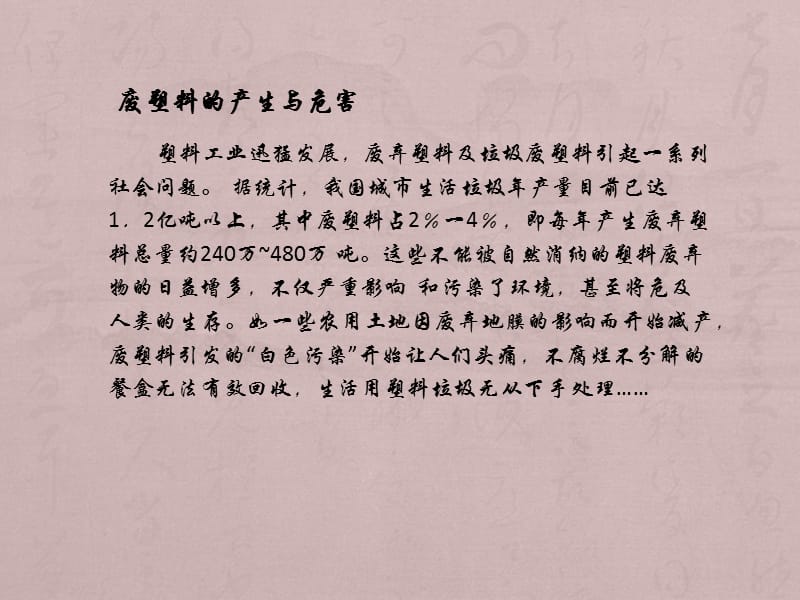 废塑料的产生与危害
塑料工业迅猛发展，废弃塑料及垃圾废塑料引起一系列
社会问题。 据统计，我国城市生活垃圾年产量目前已达
1．2亿吨以上，其中废塑料占2％一4％，即每年产生废弃塑
料总量约240万~480万 吨。这些不能被自然消纳的塑料废弃
物的日益增多，不仅严重影响 和污染了环境，甚至将危及
人类的生存。如一些农用土地因废弃地膜的影响而开始减产，
废塑料引发的“白色污染”开始让人们头痛，不腐烂不分解的
餐盒无法有效回收，生活用塑料垃圾无从下手处理……